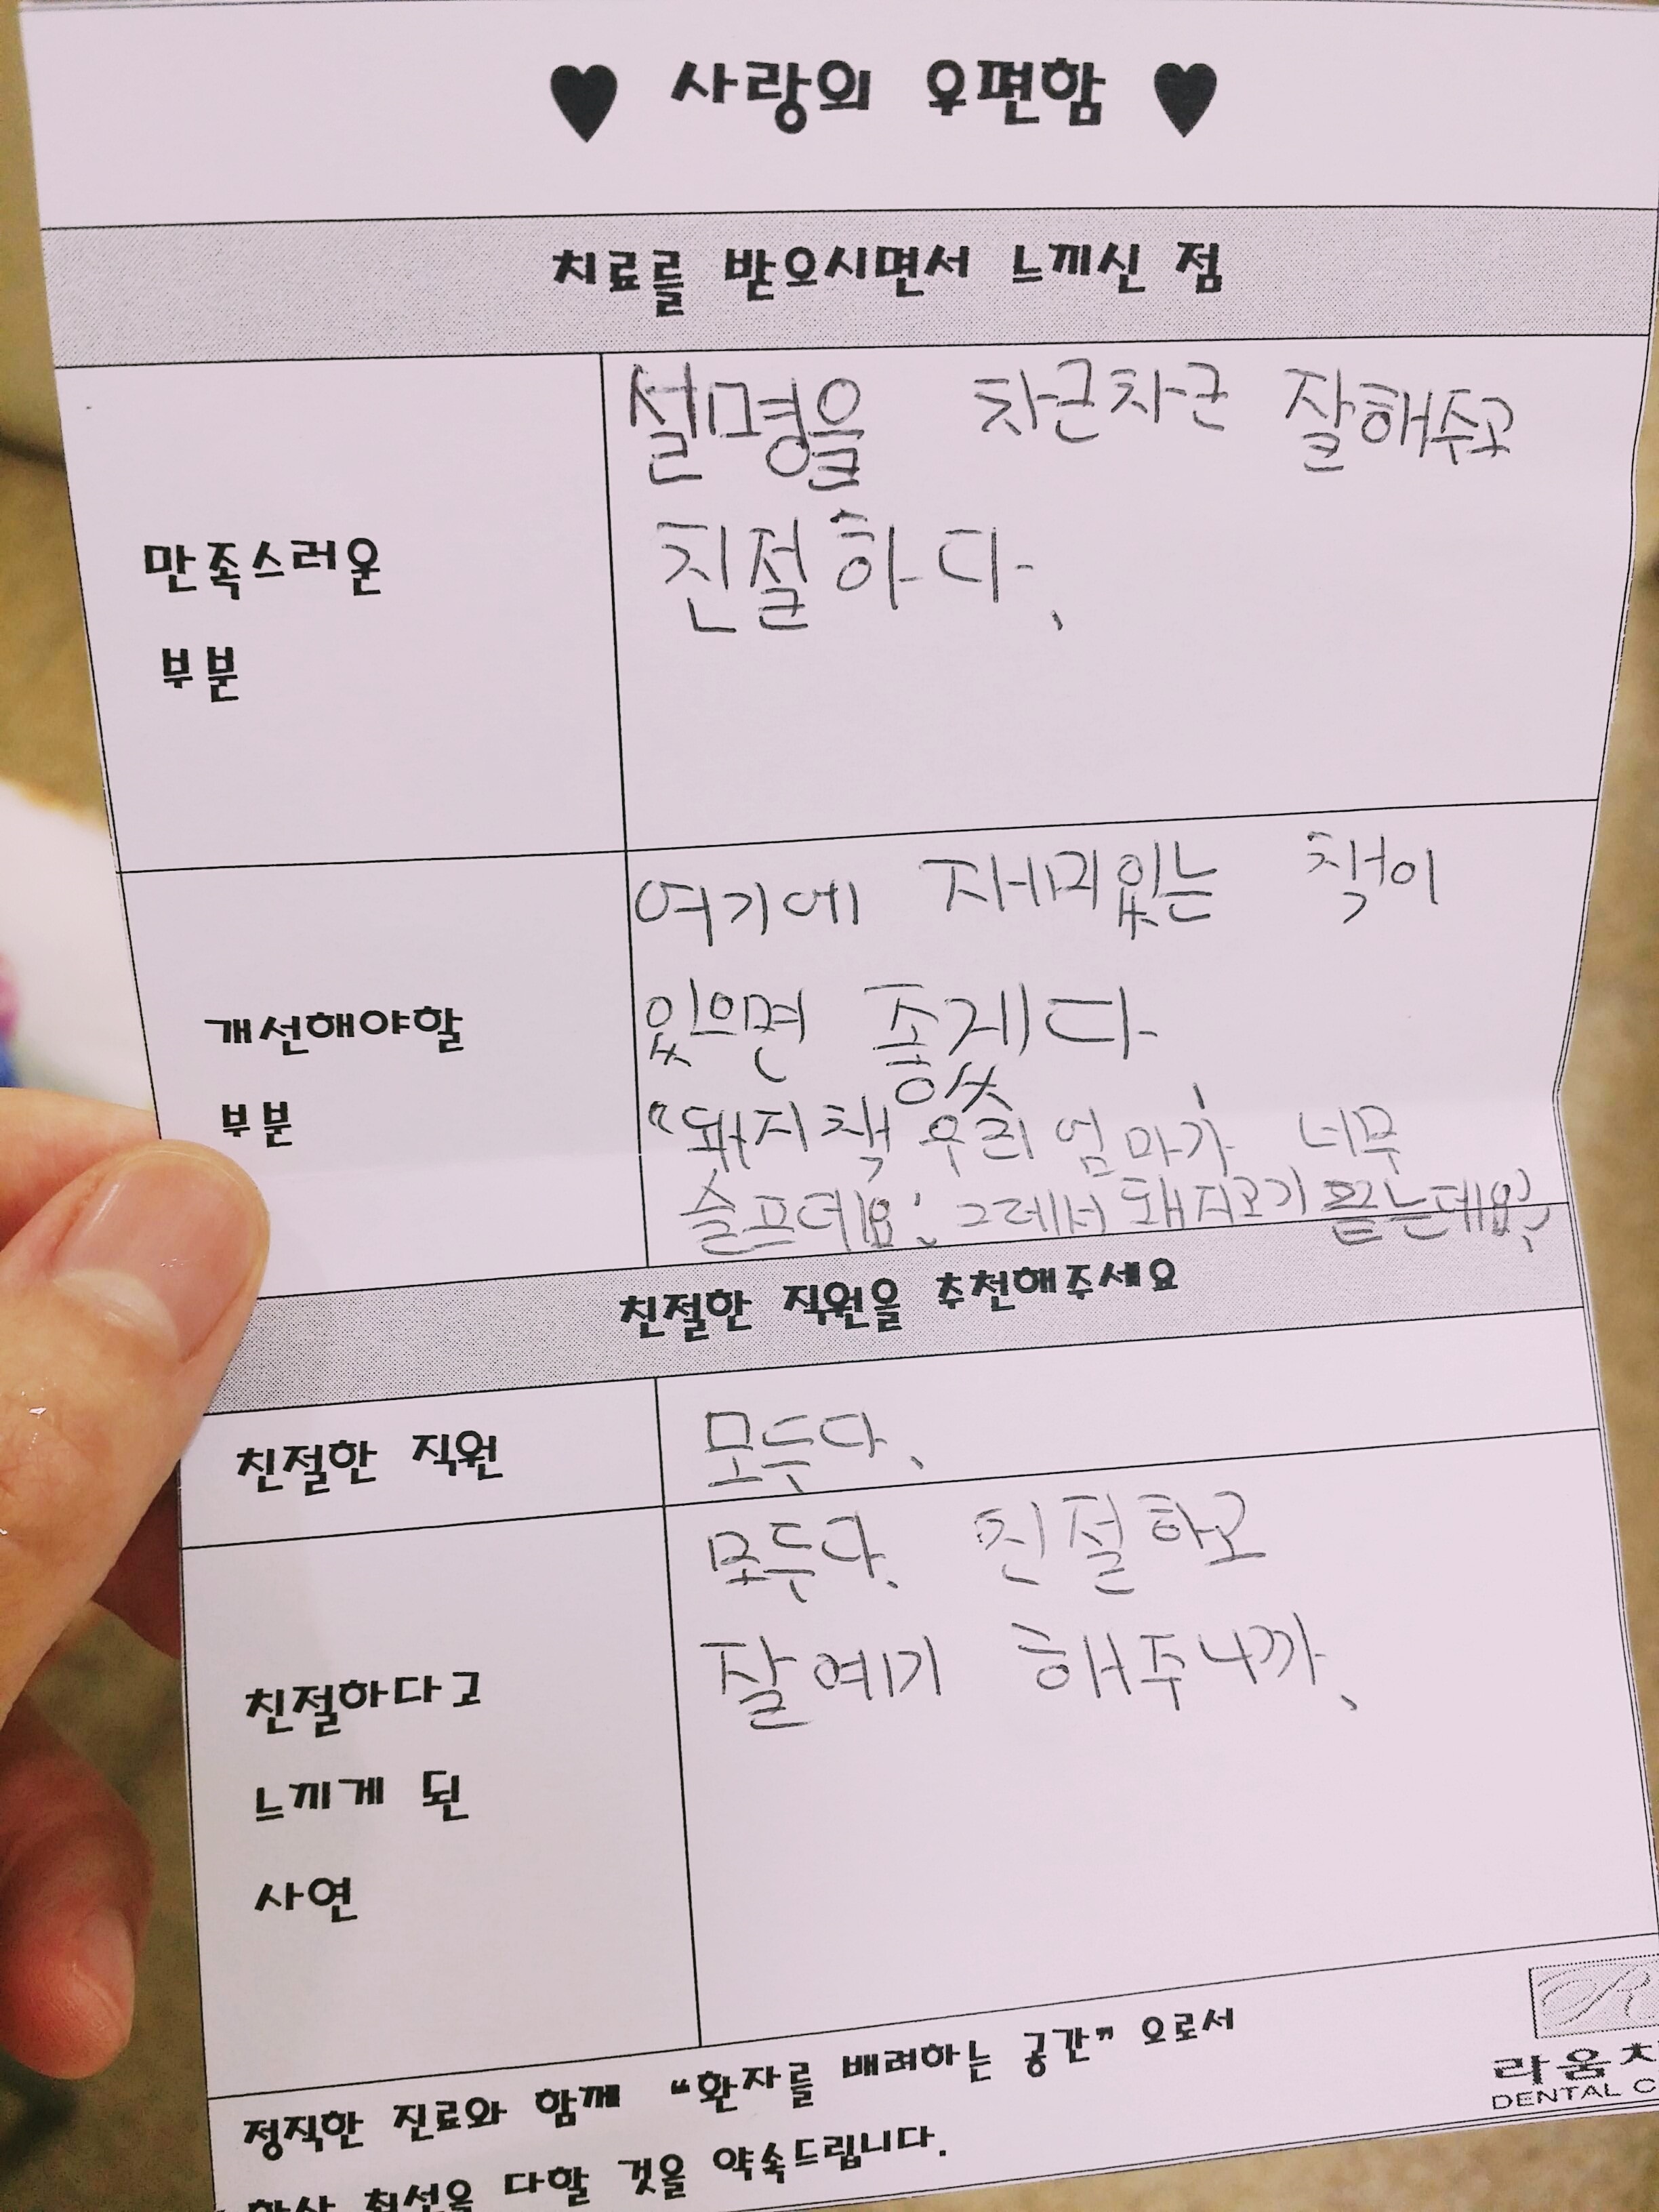 ♥ 사랑의 우편함 ♥
치료를 받으시면서 느끼신 점
만족스러운
부분
설명을 차근차근 잘해주고
친절하다.
개선해야할
부분
여기에 재미있는 책이
있으면 좋겠다
"돼지책 우리 엄마가 너무
슬프데요; 그레서 돼지고기
친절한 직원을 추천해주세요
친절한 직원
모두다.
친절하다고
느끼게 된
사연
모두다. 친절하고
잘 예기 해주니까.
정직한 진료와 함께 "환자를 배려하는 공간" 으로서
항상 최선을 다할 것을 약속드립니다.
라움
DENTAL